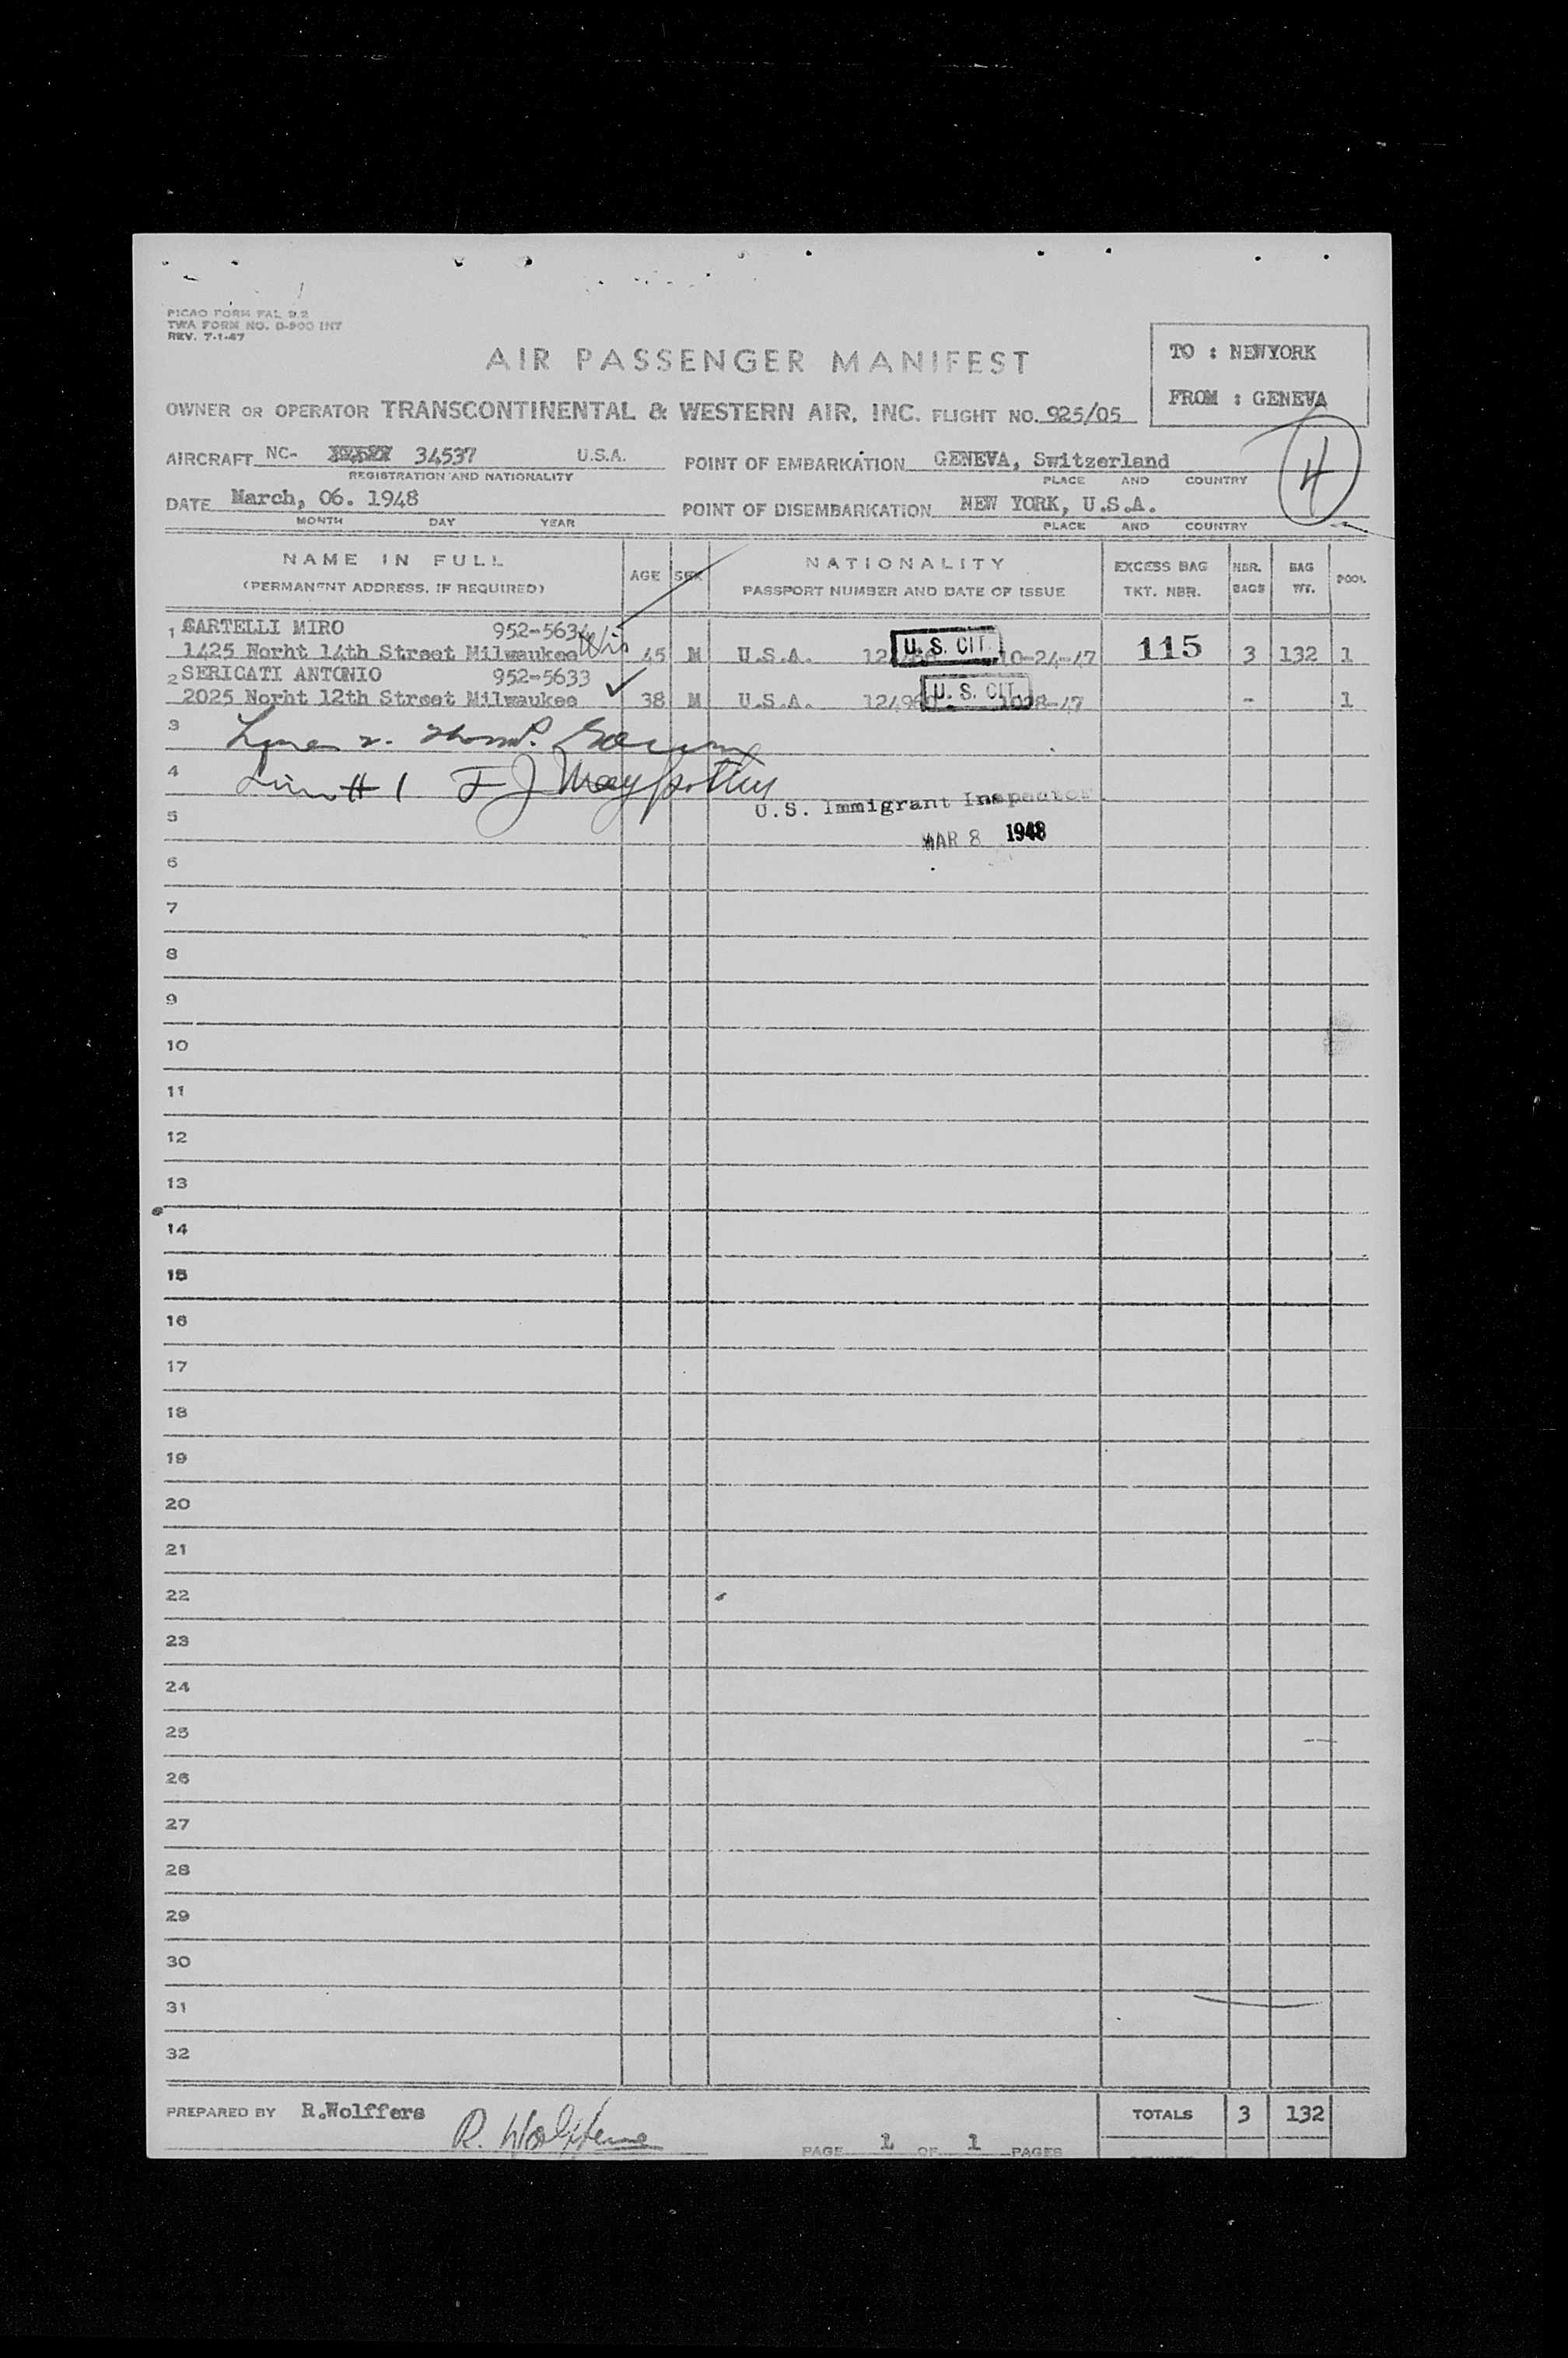 PICAO FORM FAL 9.2
TWA FORM NO. D-900 INT
REV. 7-1-47
AIR PASSENGER MANIFEST
TO : NEWYORK
FROM : GENEVA
OWNER OR OPERATOR TRANSCONTINENTAL & WESTERN AIR, INC. FLIGHT NO. 925/05
4
AIRCRAFT NC- 34537 U.S.A.
REGISTRATION AND NATIONALITY
POINT OF EMBARKATION GENEVA, Switzerland
PLACE AND COUNTRY
DATE March, 06. 1948
MONTH DAY YEAR
POINT OF DISEMBARKATION NEW YORK, U.S.A.
PLACE AND COUNTRY
NAME IN FULL
(PERMANENT ADDRESS, IF REQUIRED)
AGE SEX
NATIONALITY
PASSPORT NUMBER AND DATE OF ISSUE
EXCESS BAG
TKT. NBR.
NBR.
BAGS
BAG
WT.
POOL
1 SARTELLI MIRO 952-5634
1425 Norht 14th Street Milwaukee Wis 45 M U.S.A. U.S. CIT. 10-24-47 115 3 132 1
2 SERICATI ANTONIO 952-5633
2025 Norht 12th Street Milwaukee 38 M U.S.A. U.S. CIT. - 1
3
4 #1 F J
U.S. Immigrant Inspector
5
MAR 8 1948
6
7
8
9
10
11
12
13
14
15
16
17
18
19
20
21
22
23
24
25
26
27
28
29
30
31
32
PREPARED BY R.Wolffers
R. Wolffers
PAGE 1 OF 1 PAGES
TOTALS 3 132